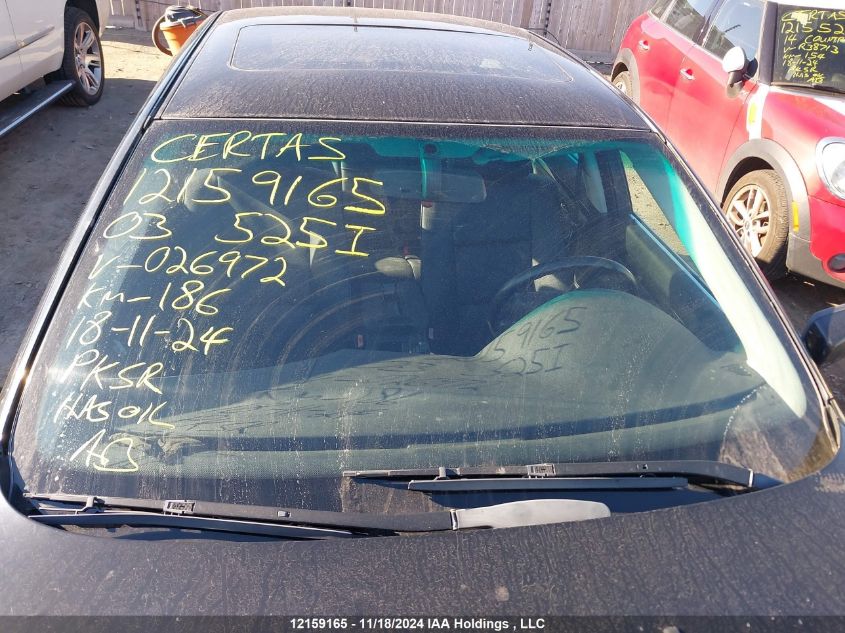 CERTAS
12159165
03 525I
V-026972
KM-186
18-11-24
PKSR
HAS OIL
AB
59165
525I
CERTAS
12155
14 COUNTR
V-R38713
KM-154
18-11-24
PKSR
HAS OIL
AB
12159165 - 11/18/2024 IAA Holdings , LLC